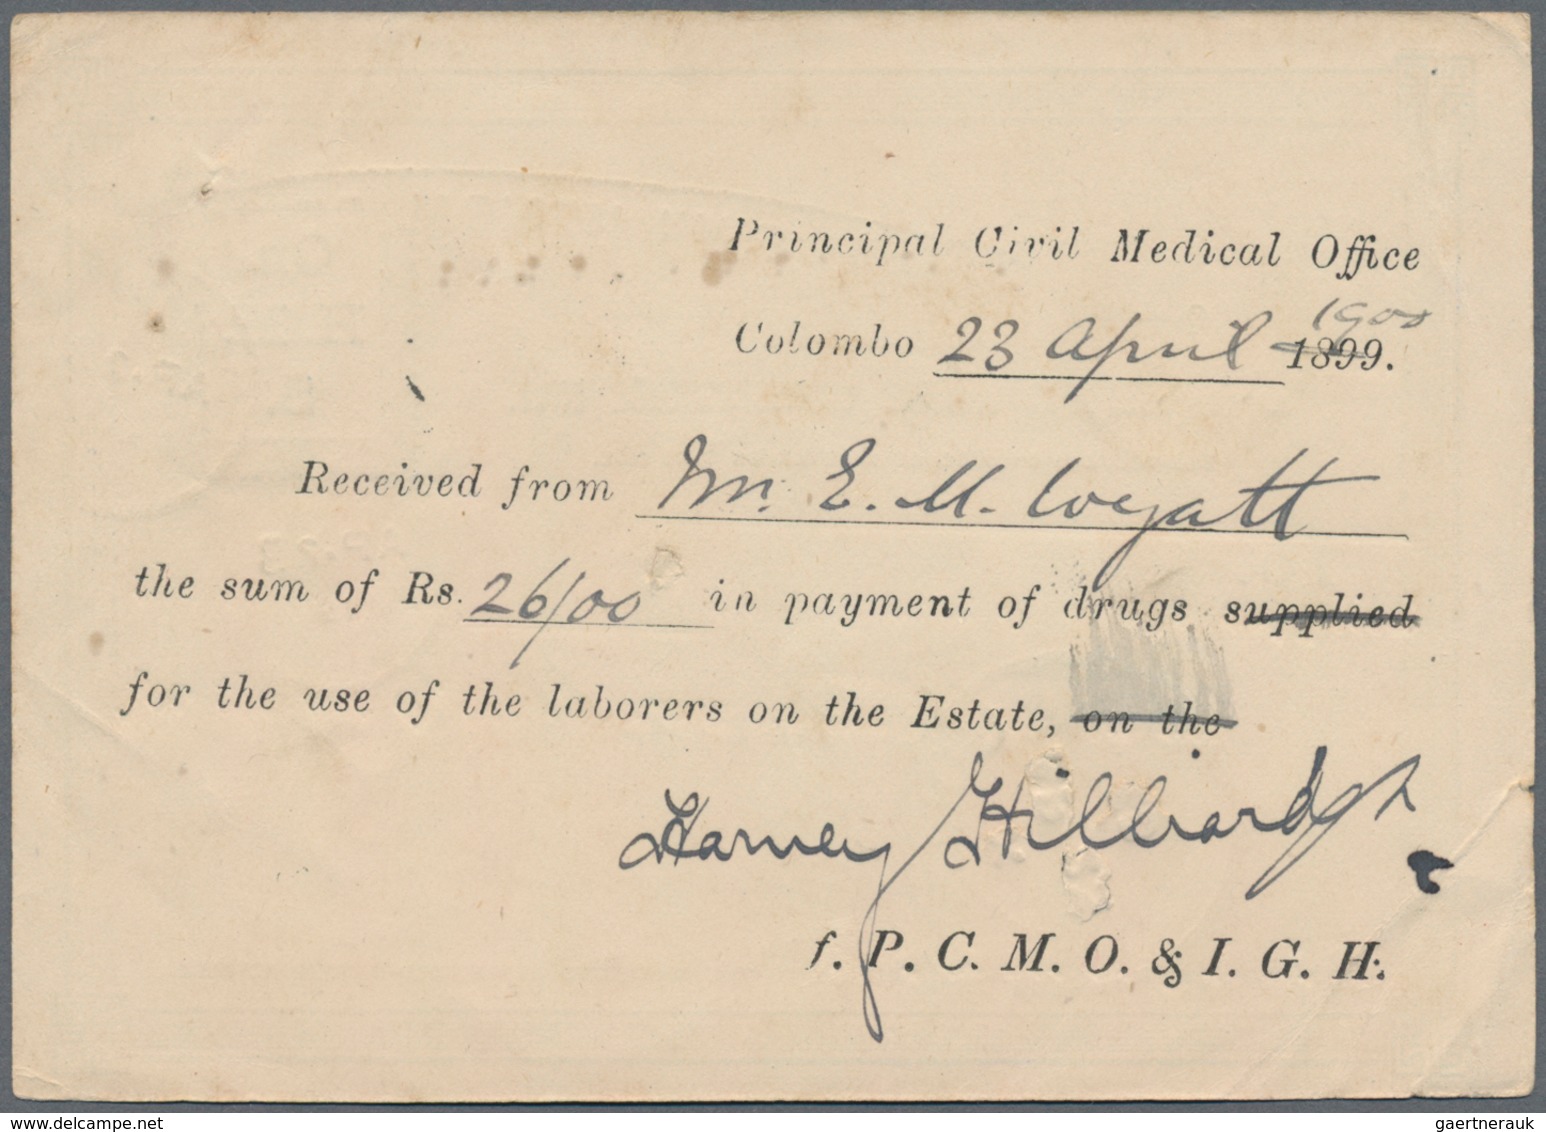 Principal Civil Medical Office
Colombo 23 April 1900 1899.
Received from Mr. E. M. Wyatt
the sum of Rs. 26/00 in payment of drugs supplied
for the use of the laborers on the Estate, on the
Harvey Hilliard
f. P. C. M. O. & I. G. H.
www.delcampe.net
gaertnerauk